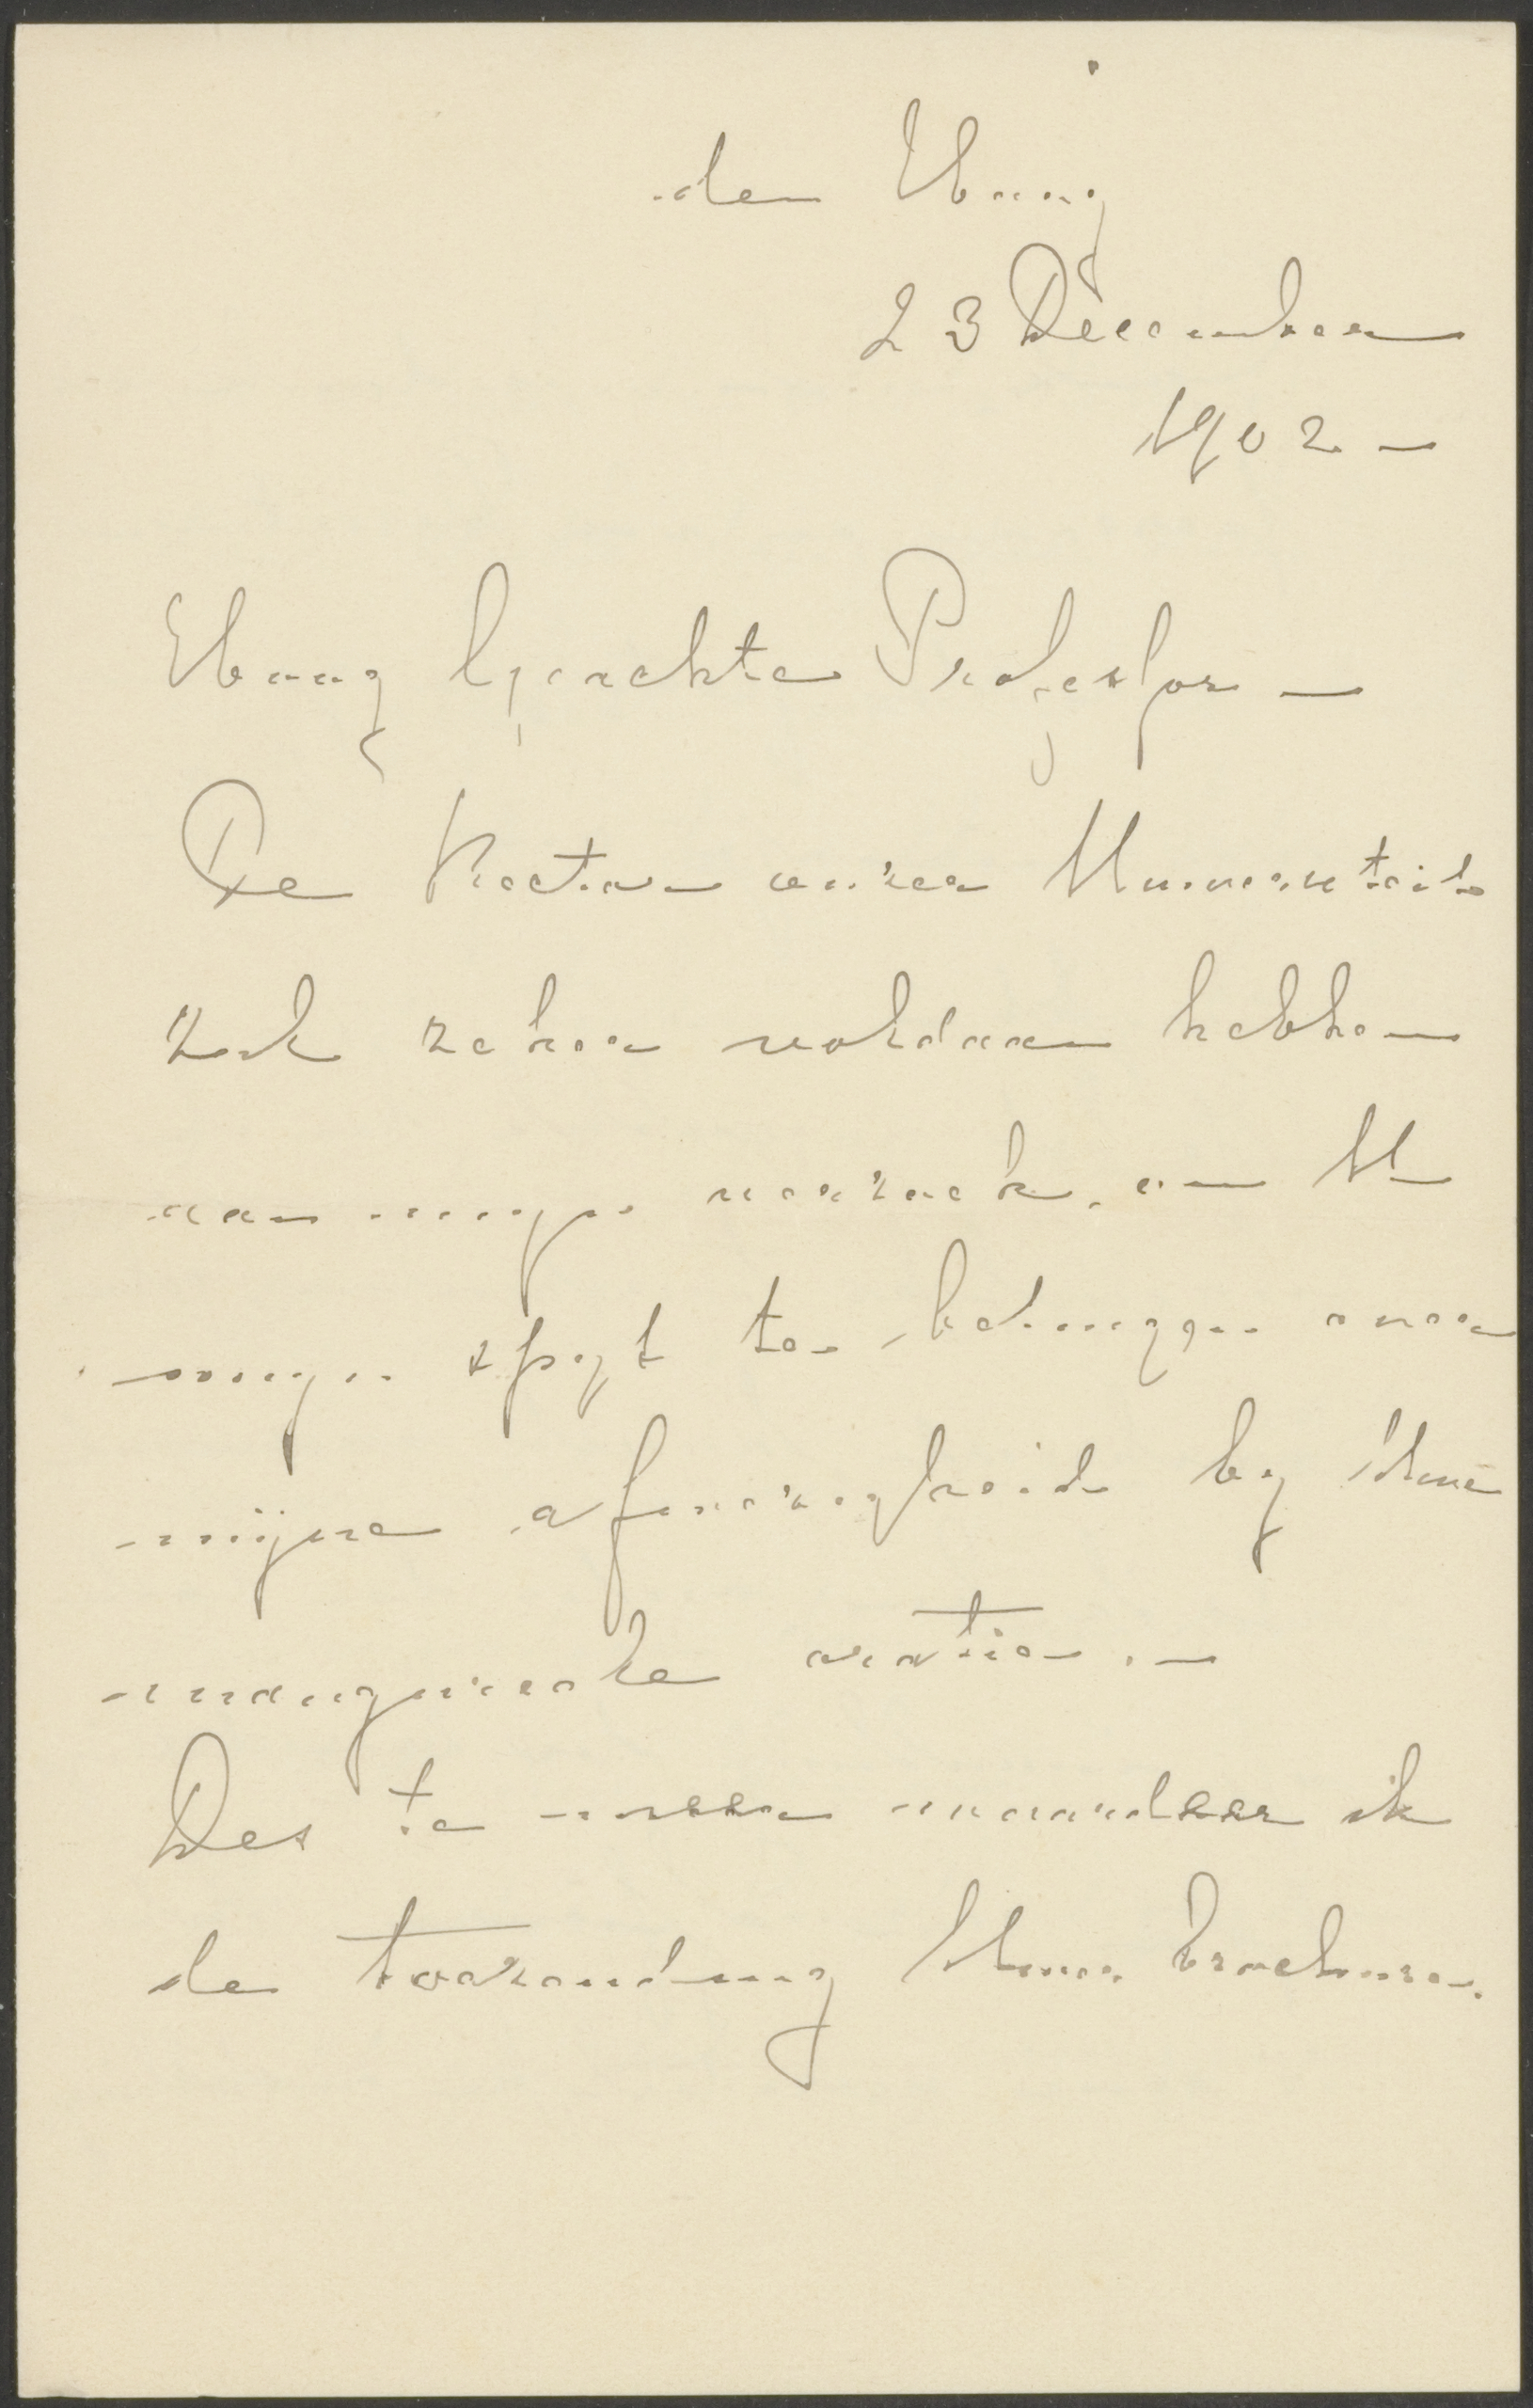 den Haag
23 December
1902 –
Hoog geachte Professor –
De Rector onzer Universiteit
zal zeker voldaan hebben
aan mijn verzoek, om U
mijn spijt te betuigen over
mijne afwezigheid bij Uwe
inaugureele oratie. –
Des te meer waardeer ik
de toezending Uwer brochure.